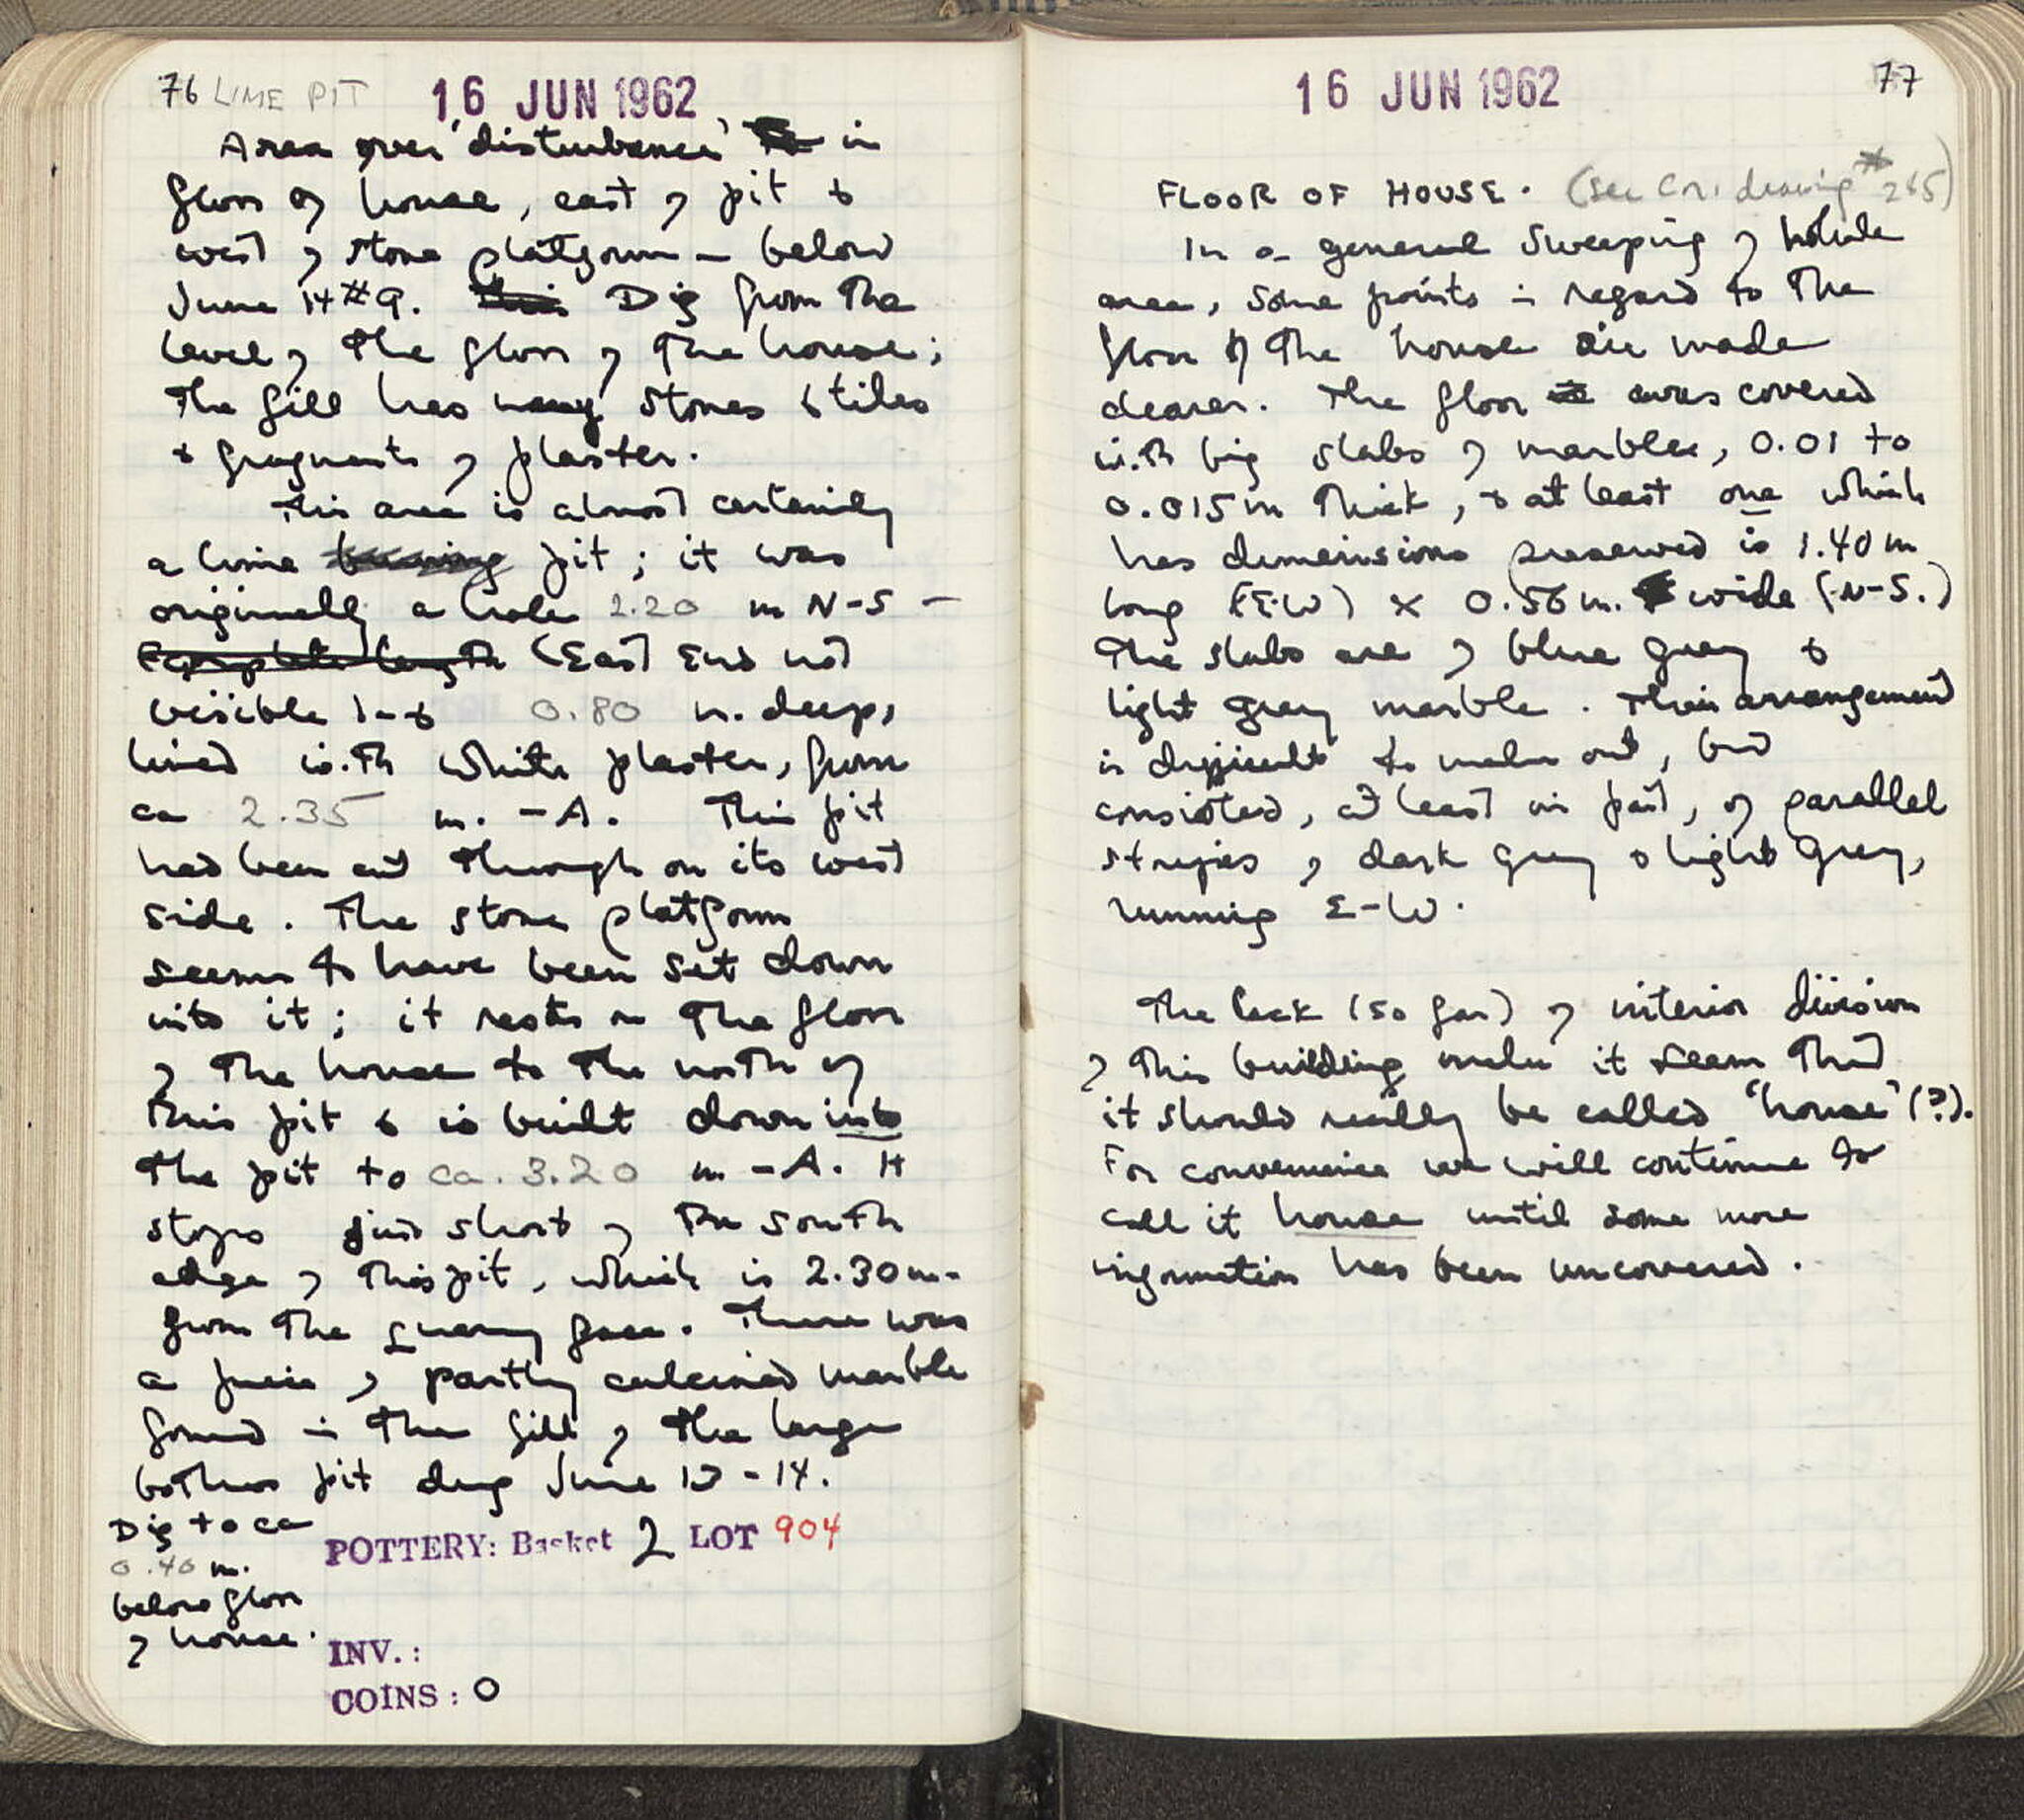 76 LIME PIT 16 JUN 1962
Area over 'disturbance' in
floor of house, east of pit &
west of stone platform - below
June 14 #9. Dig from the
level of the floor of the house;
The fill has many stones & tiles
& fragments of plaster.
This area is almost certainly
a lime pit; it was
originally a hole 2.20 m N-S -
(East End not
visible) - & 0.80 m. deep,
lined with white plaster, from
ca 2.35 m. - A. This pit
had been cut through on its west
side. The stone platform
seems to have been set down
into it; it rests on the floor
of the house to the north of
this pit & is built down into
the pit to ca. 3.20 m - A. It
stops just short of the south
edge of this pit, which is 2.30 m.
from the scarp face. There was
a piece of partly calcined marble
found in the fill of the large
bothros pit dug June 13-14.
Dig to ca
0.40 m.
below floor
of house.
POTTERY: Basket 2 LOT 904
INV.:
COINS: 0
16 JUN 1962 77
FLOOR OF HOUSE. (see Cor. drawing # 265)
In a general sweeping of whole
area, some points in regard to the
floor of the house are made
clearer. The floor was covered
with big slabs of marble, 0.01 to
0.015 m thick, & at least one which
has dimensions preserved is 1.40 m
long (E-W) x 0.56 m. wide (N-S.)
The slabs are of blue grey &
light grey marble. Their arrangement
is difficult to make out, but
consisted, at least in part, of parallel
stripes of dark grey & light grey,
running E-W.
The lack (so far) of interior division
of this building makes it seem that
it should really be called "house" (?).
For convenience we will continue to
call it house until some more
information has been uncovered.